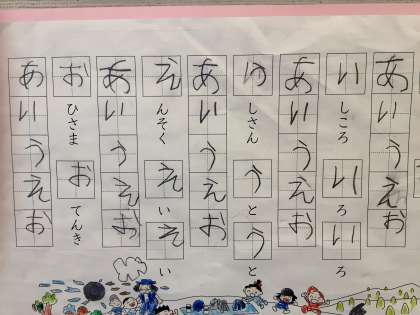 あいうえお
いしころ いろ いろ
あいうえお
ゆしさん うと うと
あいうえお
えんそく えい えい
あいうえお
おひさま おてんき
あいうえお